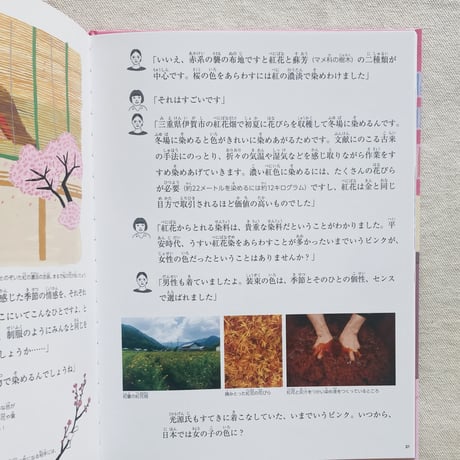 「いいえ、赤系の襲の布地ですと紅花と蘇芳（マメ科の樹木）の二種類が
中心です。桜の色をあらわすには紅の濃淡で染めわけました」
「それはすごいです」
「三重県伊賀市の紅花畑で初夏に花びらを収穫して冬場に染めるんです。
冬場に染めると色がきれいに染めあがるためです。文献にのこる古来
の手法にのっとり、折々の気温や湿気などを感じ取りながら作業をす
すめ染めあげていきます。濃い紅色に染めるには、たくさんの花びら
が必要（約22メートルを染めるには約12キログラム）ですし、紅花は金と同じ
目方で取引されるほど価値の高いものでした」
「紅花からとれる染料は、貴重な染料だということがわかりました。平
安時代、うすい紅花染をあらわすことが多かったいまでいうピンクが、
女性の色だったということはありませんか？」
「男性も着ていましたよ。装束の色は、季節とそのひとの個性、センス
で選ばれました」
初夏の紅花畑
摘みとった紅花の花びら
紅花と灰汁をつかい染め液をつくっているところ
光源氏もすてきに着こなしていた、いまでいうピンク。いつから、
日本では女の子の色に？
21
感じた季節の情感を、それぞれ
こにいてこんなひとですよ、と
制服のようにみんなと同じを
しょうか……」
物で染めるんでしょうね」